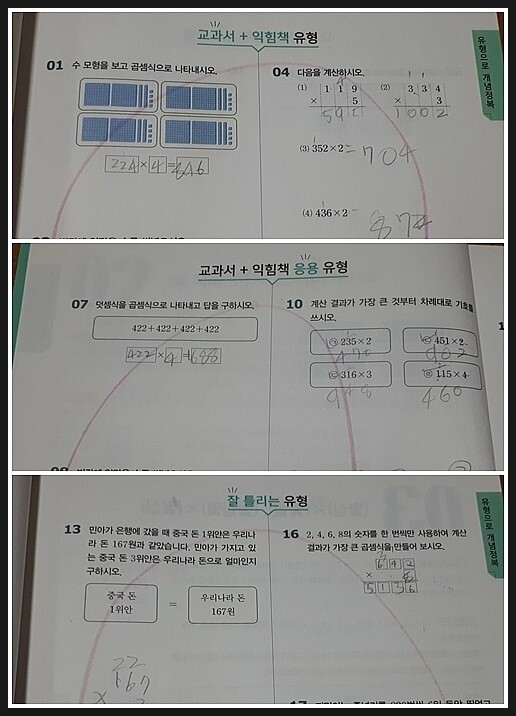 교과서 + 익힘책 유형
유형으로 개념정복
01 수 모형을 보고 곱셈식으로 나타내시오.
224 × 4 =
04 다음을 계산하시오.
(1) 1 1 9
× 5
(2) 3 3 4
× 3
1 0 0 2
(3) 352×2 = 704
(4) 436×2 = 872
교과서 + 익힘책 응용 유형
07 덧셈식을 곱셈식으로 나타내고 답을 구하시오.
422+422+422+422
422 × 4 = 1688
10 계산 결과가 가장 큰 것부터 차례대로 기호를
쓰시오.
㉠ 235×2
470
㉡ 451×2
902
㉢ 316×3
948
㉣ 115×4
460
잘 틀리는 유형
유형으로 개념정복
13 민아가 은행에 갔을 때 중국 돈 1위안은 우리나
라 돈 167원과 같았습니다. 민아가 가지고 있
는 중국 돈 3위안은 우리나라 돈으로 얼마인지
구하시오.
중국 돈
1위안
=
우리나라 돈
167원
22
167
×
16 2, 4, 6, 8의 숫자를 한 번씩만 사용하여 계산
결과가 가장 큰 곱셈식을 만들어 보시오.
6 4 2
× 8
5 1 3 6